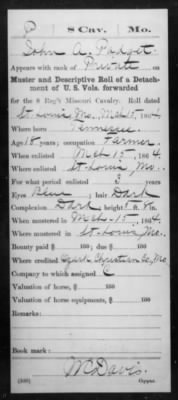 P 8 Cav. Mo.
John A. Padget
Appears with rank of Private on
Master and Descriptive Roll of a Detach-
ment of U. S. Vols. forwarded
for the 8 Reg't Missouri Cavalry. Roll dated
St. Louis Mo., Mch 17, 1864
Where born Tennessee
Age 18 years; occupation Farmer
When enlisted Mch 15, 1864.
Where enlisted St. Louis, Mo.
For what period enlisted years.
Eyes ; hair Dark
Complexion Dark; height ft. in.
When mustered in Mch 15, 1864.
Where mustered in St. Louis, Mo.
Bounty paid $ 100; due $ 100
Where credited Christian Co, Mo
Company to which assigned C
Valuation of horse, $ 100
Valuation of horse equipments, $ 100
Remarks:
Book mark:
McDavis
Copyist.